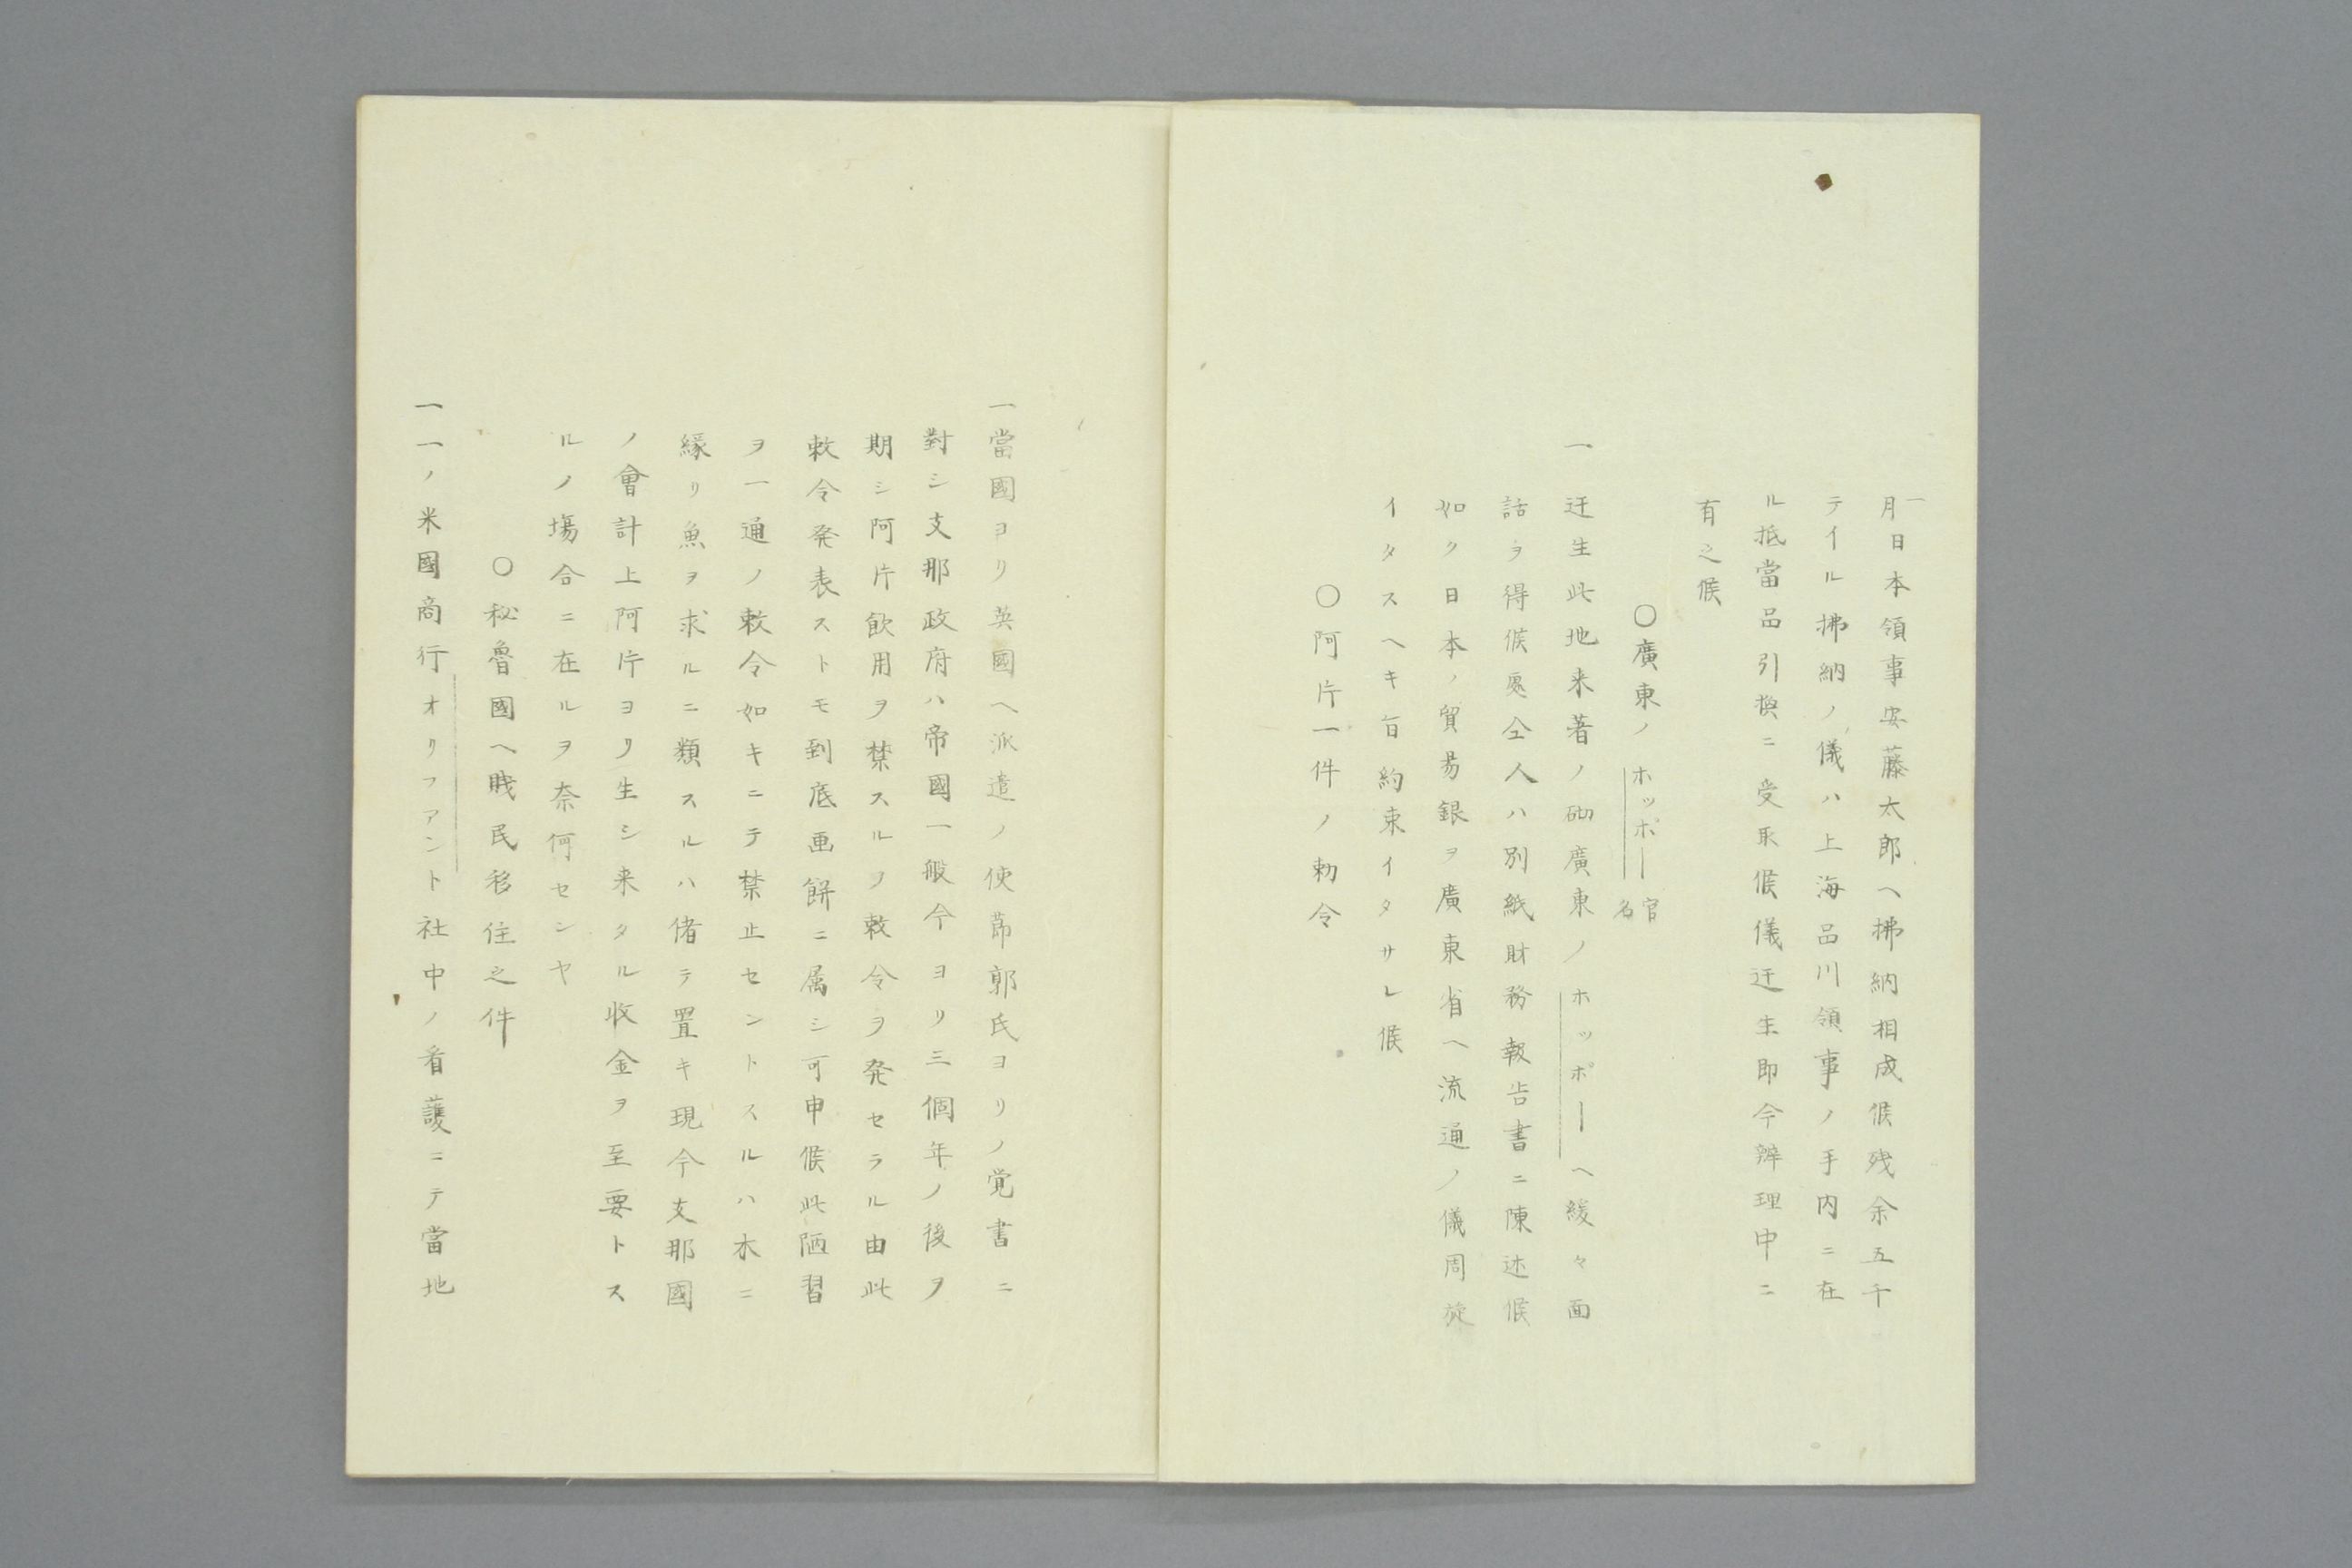 一月日本領事安藤太郎ヘ拂納相成候残余五千
テイル拂納ノ儀ハ上海品川領事ノ手内ニ在
ル抵當品引換ニ受取候儀迂生即今辨理中ニ
有之候
〇廣東ノホッポー官名
一迂生此地来著ノ砌廣東ノホッポーヘ緩々面
話ヲ得候處仝人ハ別紙財務報告書ニ陳述候
如ク日本ノ貿易銀ヲ廣東省ヘ流通ノ儀周旋
イタスヘキ旨約束イタサレ候
〇阿片一件ノ勅令
一當國ヨリ英國ヘ派遣ノ使節郭氏ヨリノ覚書ニ
對シ支那政府ハ帝國一般今ヨリ三個年ノ後ヲ
期シ阿片飲用ヲ禁スルヲ敕令ヲ発セラル由此
敕令発表ストモ到底画餅ニ属シ可申候此陋習
ヲ一通ノ敕令如キニテ禁止セントスルハ木ニ
縁リ魚ヲ求ルニ類スルハ偖テ置キ現今支那國
ノ會計上阿片ヨリ生シ来タル收金ヲ至要トス
ルノ塲合ニ在ルヲ奈何センヤ
〇秘魯國ヘ賤民移住之件
一一ノ米國商行オリファント社中ノ看護ニテ當地